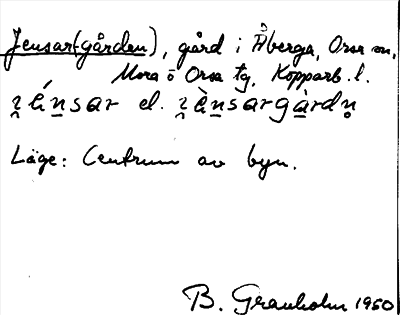 Jensar(gården), gård i Åberga, Orsa sn,
Mora o Orsa tg, Kopparb. l.
ɀénsar el. ɀènsargàrdn̥
Läge: Centrum av byn.
B. Granholm 1950